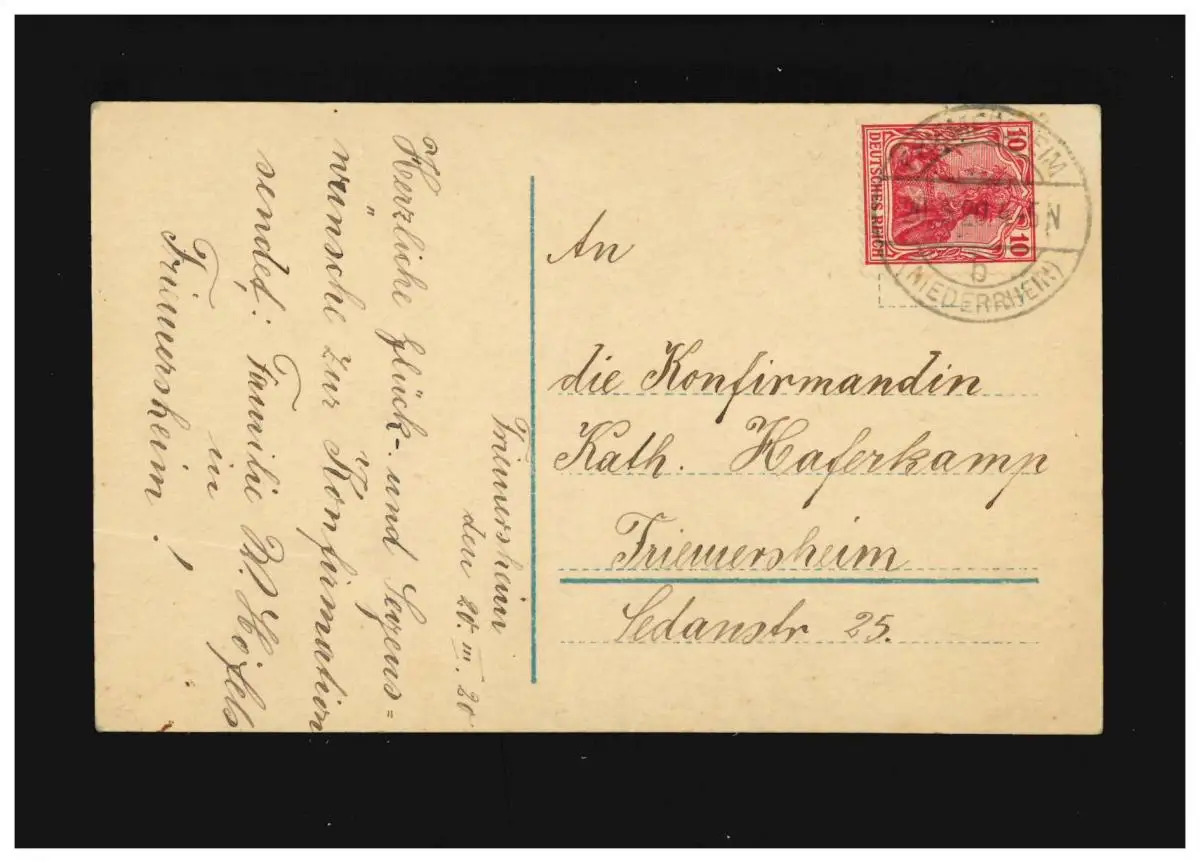 Friemersheim
den 20. III. 20
Herzliche Glück- und Segens=
wünsche zur Konfirmation
sendet: Familie W. Höfels
in
Friemersheim!
An
die Konfirmandin
Kath. Haferkamp
Friemersheim
Sedanstr 25.
10 DEUTSCHES REICH 10
b
(NIEDERRHEIN)